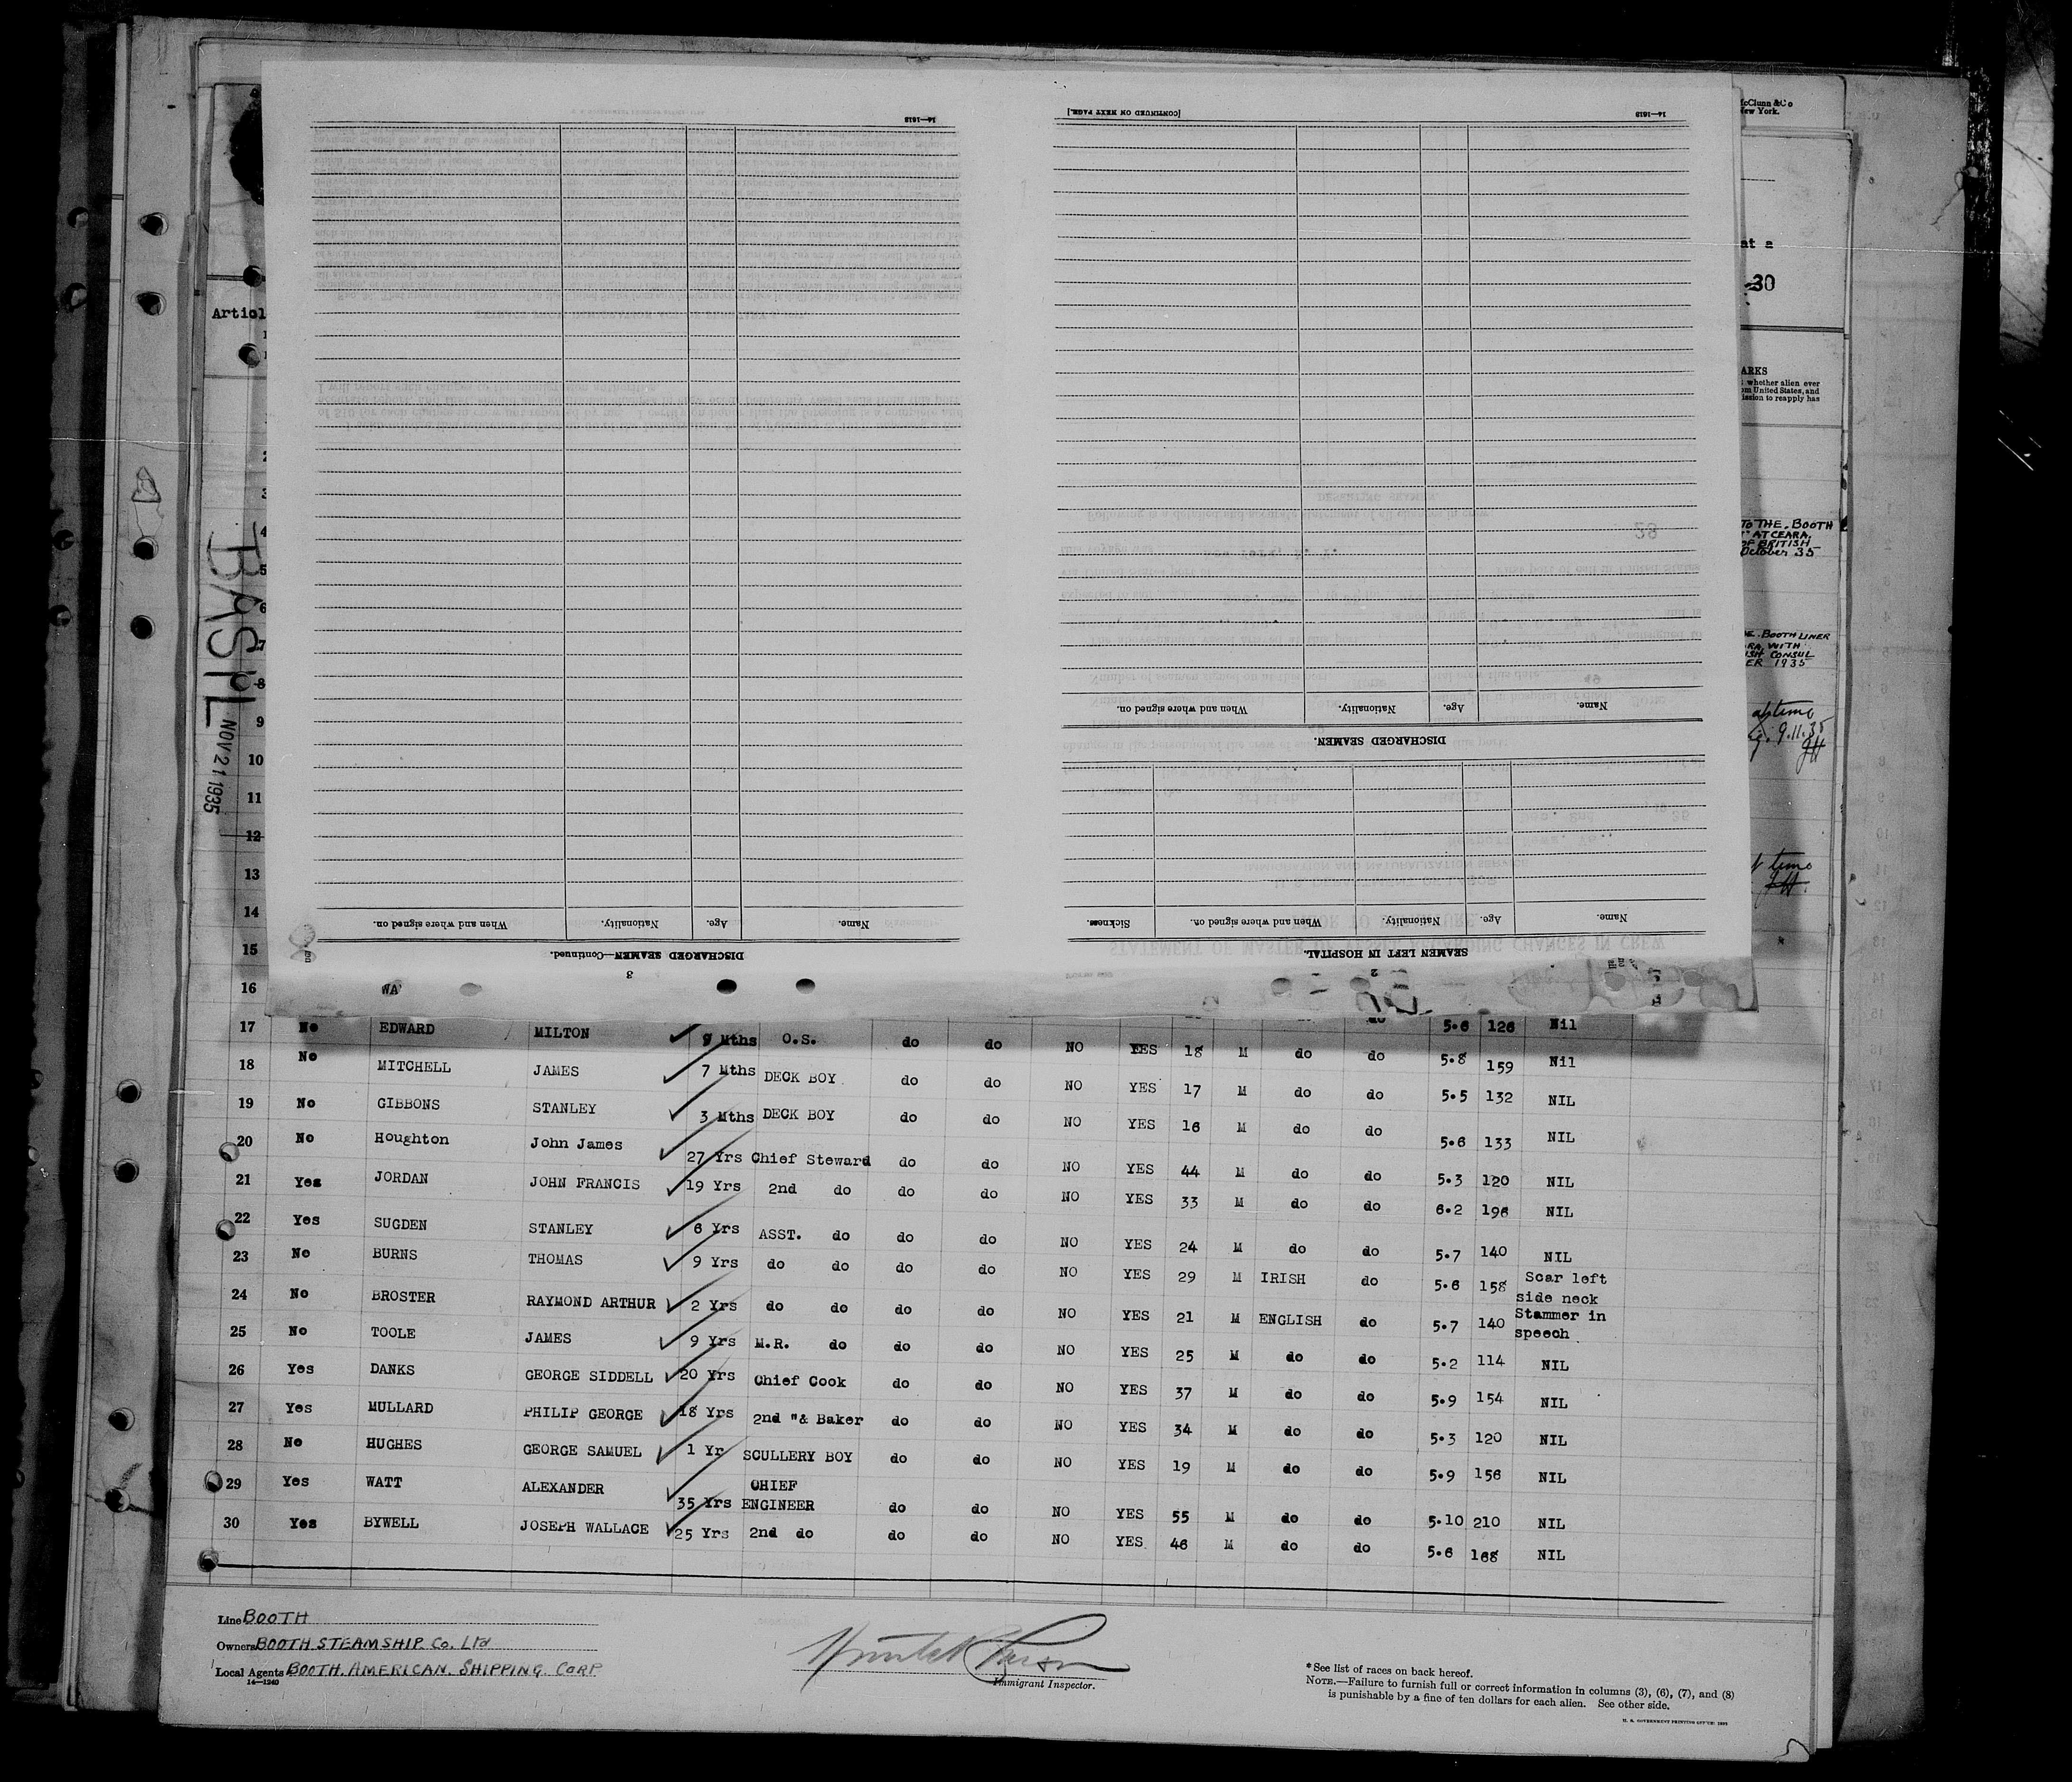 14—1613
[CONTINUED ON NEXT PAGE.]
14—1613
McClunn & Co
New York.
at a
30
Articl
ARKS
whether alien ever
om United States, and
ission to reapply has
TO THE BOOTH
AT CEARA,
OF BRITISH
October 35
BOOTH LINER
WITH
CONSUL
ER 1935
9.11.35
time
BASIL
NOV 21 1935
1
2
3
4
5
6
7
8
9
10
11
12
13
14
15
16
When and where signed on.
Nationality.
Age.
Name.
DISCHARGED SEAMEN.
When and where signed on.
Nationality.
Age.
Name.
Sickness.
When and where signed on.
Nationality.
Age.
Name.
DISCHARGED SEAMEN—Continued.
3
SEAMEN LEFT IN HOSPITAL.
2
WA
17 No EDWARD MILTON 9 Mths O.S. do do NO YES 18 M do do 5.6 126 Nil
18 No MITCHELL JAMES 7 Mths DECK BOY do do NO YES 17 M do do 5.8 159 Nil
19 No GIBBONS STANLEY 3 Mths DECK BOY do do NO YES 16 M do do 5.5 132 NIL
20 No Houghton John James 27 Yrs Chief Steward do do NO YES 44 M do do 5.6 133 NIL
21 Yes JORDAN JOHN FRANCIS 19 Yrs 2nd do do do NO YES 33 M do do 5.3 120 NIL
22 Yes SUGDEN STANLEY 6 Yrs ASST. do do do NO YES 24 M do do 6.2 196 NIL
23 No BURNS THOMAS 9 Yrs do do do do NO YES 29 M IRISH do 5.7 140 NIL
24 No BROSTER RAYMOND ARTHUR 2 Yrs do do do do NO YES 21 M ENGLISH do 5.6 158 Scar left side neck
25 No TOOLE JAMES 9 Yrs M.R. do do do NO YES 25 M do do 5.7 140 Stammer in speech
26 Yes DANKS GEORGE SIDDELL 20 Yrs Chief Cook do do NO YES 37 M do do 5.2 114 NIL
27 Yes MULLARD PHILIP GEORGE 18 Yrs 2nd "& Baker do do NO YES 34 M do do 5.9 154 NIL
28 No HUGHES GEORGE SAMUEL 1 Yr SCULLERY BOY do do NO YES 19 M do do 5.3 120 NIL
29 Yes WATT ALEXANDER 35 Yrs CHIEF ENGINEER do do NO YES 55 M do do 5.9 156 NIL
30 Yes BYWELL JOSEPH WALLACE 25 Yrs 2nd do do do NO YES 46 M do do 5.10 210 NIL
5.6 168 NIL
Line BOOTH
Owners BOOTH STEAMSHIP Co. Ltd
Local Agents BOOTH. AMERICAN. SHIPPING CORP
14—1240
Immigrant Inspector.
*See list of races on back hereof.
NOTE.—Failure to furnish full or correct information in columns (3), (6), (7), and (8)
is punishable by a fine of ten dollars for each alien. See other side.
U. S. GOVERNMENT PRINTING OFFICE: 1931